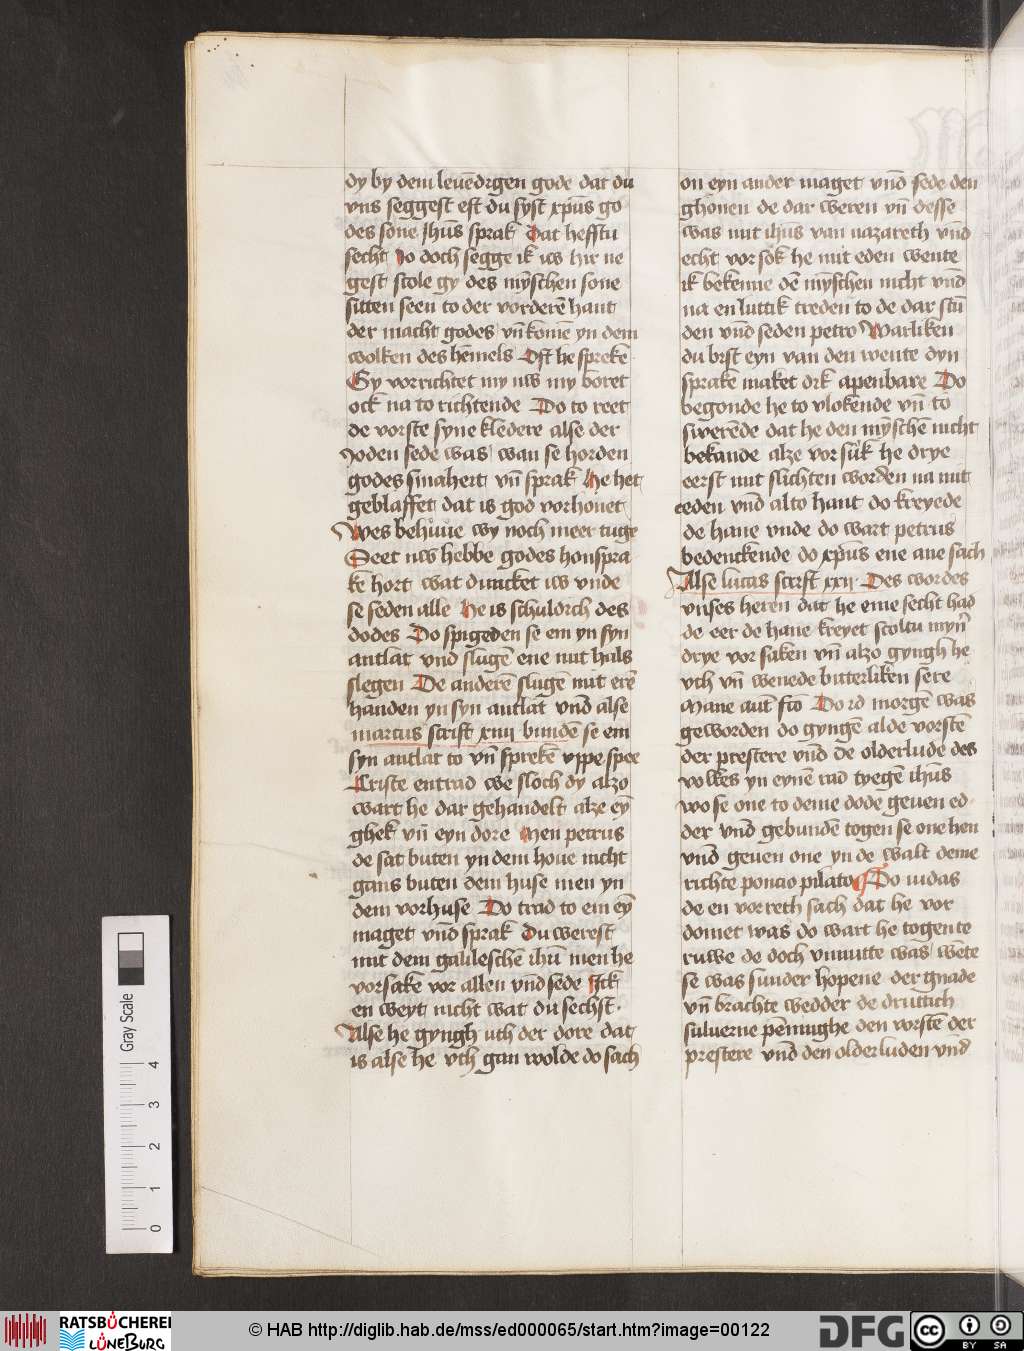 dy by dem leuēdigen gode dat du
vns seggest eft du syst xp̄us go
des sone Jhūs sprak Dat hefftu
secht Jo doch segge ik iw hir ne
gest scole gy des mȳschen sone
sitten seen to der vorderē hant
der macht godes vn̄ komē yn dem
wolken des hēmels Oft he sprekē
Gy vorrichtet my nw my boret
ock na to richtende Do to reet
de vorste syne kledere alse der
Joden sede was wan se horden
godes smaheit vn̄ sprak He het
geblaffet dat is god vorhonet
Wes behůue wy noch meer tuge
Seet nw hebbe godes honspra
ke hort wat duncket iw vnde
se seden alle He is schuldich des
dodes Do spigeden se em yn syn
antlat vnd̄ slugē ene mit hals
slegen De anderē slugē mit erē
handen yn syn antlat vnd̄ alse
marcus scrift xiiii bundē se em
syn antlat to vn̄ sprekē vppe spee
Criste entrad we sloch dy alzo
wart he dar gehandelt alze eȳ
ghek vn̄ eyn dore Men petrus
de sat buten yn dem houe nicht
gans buten dem huse men yn
dem vorhuse Do trad to em eȳ
maget vnd̄ sprak Du werest
mit dem galileschē ihū men he
vorsake vor allen vnd̄ sede Ick
en weyt nicht wat du sechst
Alse he gyngh uth der dore dat
is alse he vth gan wolde do sach
on eyn ander maget vnd̄ sede den
ghonen de dar weren vn̄ desse
was mit ihūs van nazareth vnd̄
echt vorsok he mit eden wente
ik bekenne dē mȳschen nicht vnd̄
na en luttik treden to de dar stū
den vnd̄ seden petro Warliken
du bist eyn van den wente dyn
sprake maket dik apenbare Do
begonde he to vlokende vn̄ to
swerēde dat he den mȳschē nicht
bekande alze vorsůk he drye
eerst mit slichten worden na mit
eeden vnd̄ al to hant do kreyede
de hane vnde do wart petrus
bedenckende do xp̄us ene ane sach
Alse lucas scrift xxii Des wordes
vnses heren dat he eme secht had
de eer de hane kreyet scoltu mȳn̄
drye vorsaken vn̄ alzo gyngh he
vth vn̄ wenede bitterliken sere
Mane aut̄ fc̄o Do id morgē was
geworden do gyngē alde vorstē
der prestere vnd̄ de olderlude des
volkes yn eynē rad tyegē ihūs
wo se one to deme dode geuen ed
der vnd̄ gebundē togen se one hen
vnd̄ geuen one yn de walt deme
richte poncio pilato ¶ Do iudas
de en vorreth sach dat he vor
domet was do wart he togente
ruwe de doch vnnutte was wēte
se was sunder hopene der gnade
vn̄ brachte wedder de druttich
suluerne pēnnighe den vorstē der
prestere vnd̄ den olderluden vnd̄
Gray Scale
0 1 2 3 4
RATSBÜCHEREI
LÜNEBURG
© HAB http://diglib.hab.de/mss/ed000065/start.htm?image=00122
DFG
cc
BY SA